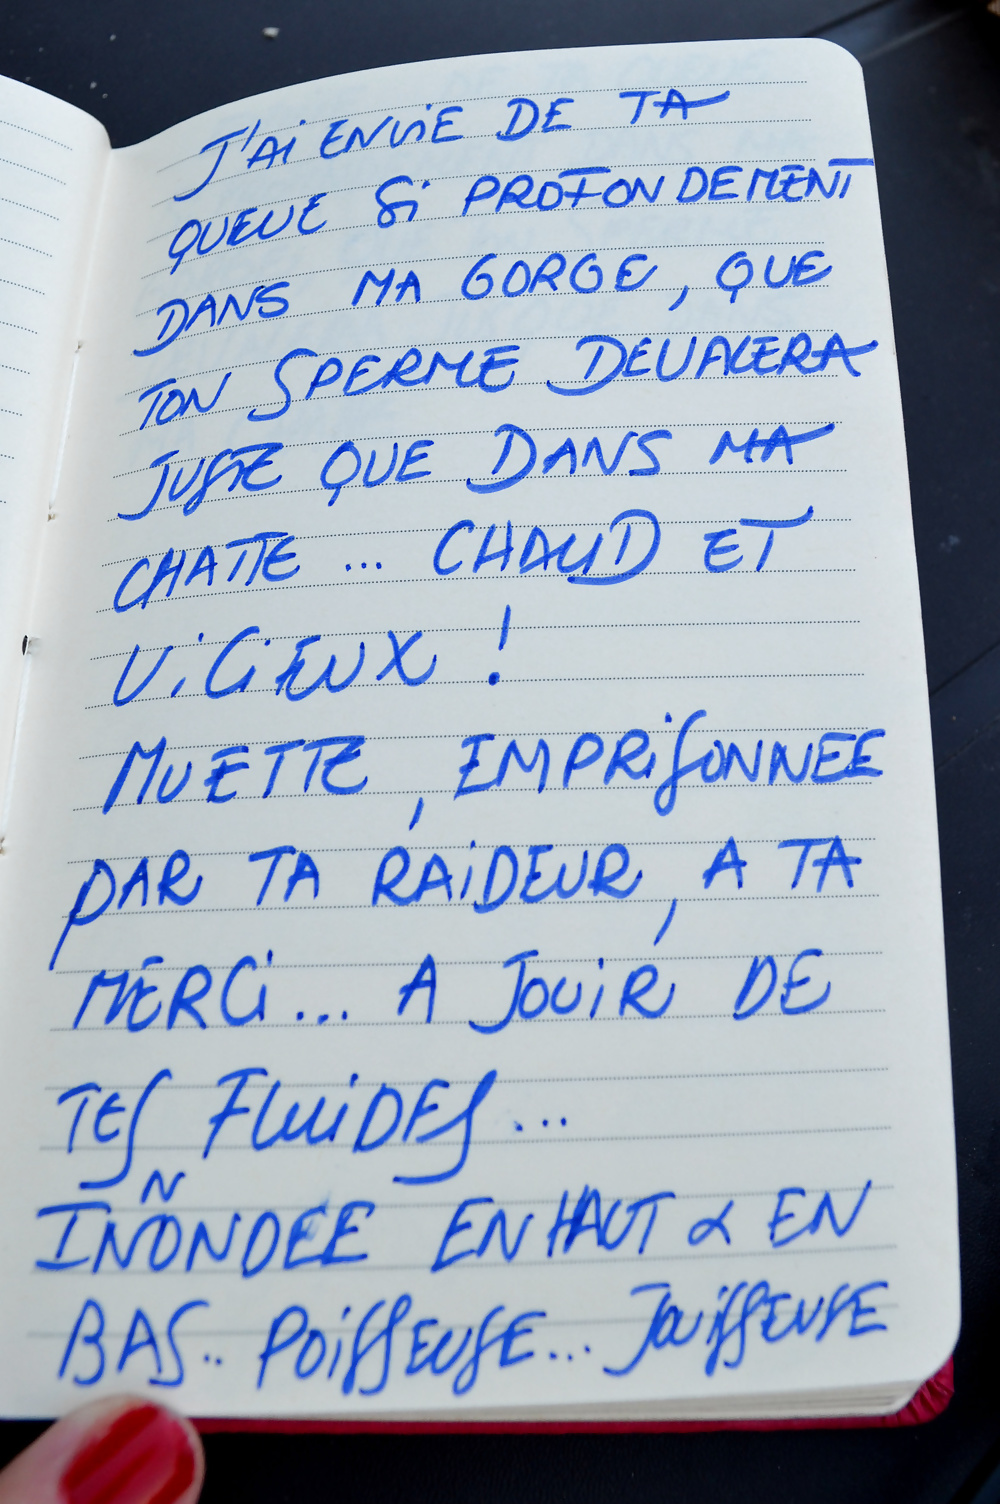 J'Ai ENViE DE TA
QUEUE Si PROFONDEMENT
DANS MA GORGE, QUE
TON SPERME DEVALERA
JUSTE QUE DANS MA
CHATTE ... CHAUD ET
ViCiEUX !
MUETTE, EMPRiSONNEE
PAR TA RAiDEUR, A TA
MERCi... A JOUiR DE
TES FLUiDES...
INONDEE EN HAUT & EN
BAS.. POiSSEUSE... JOUiSSEUSE